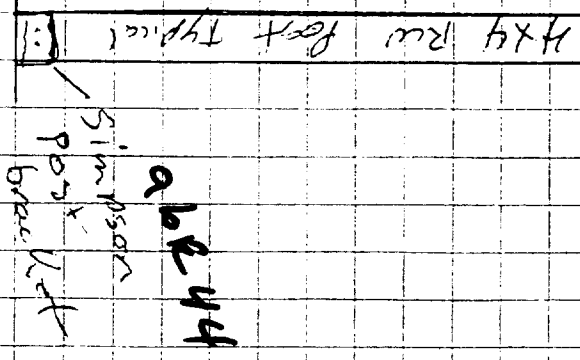 4x4 RW Post Typical
Simpson
post
bracket
abk44